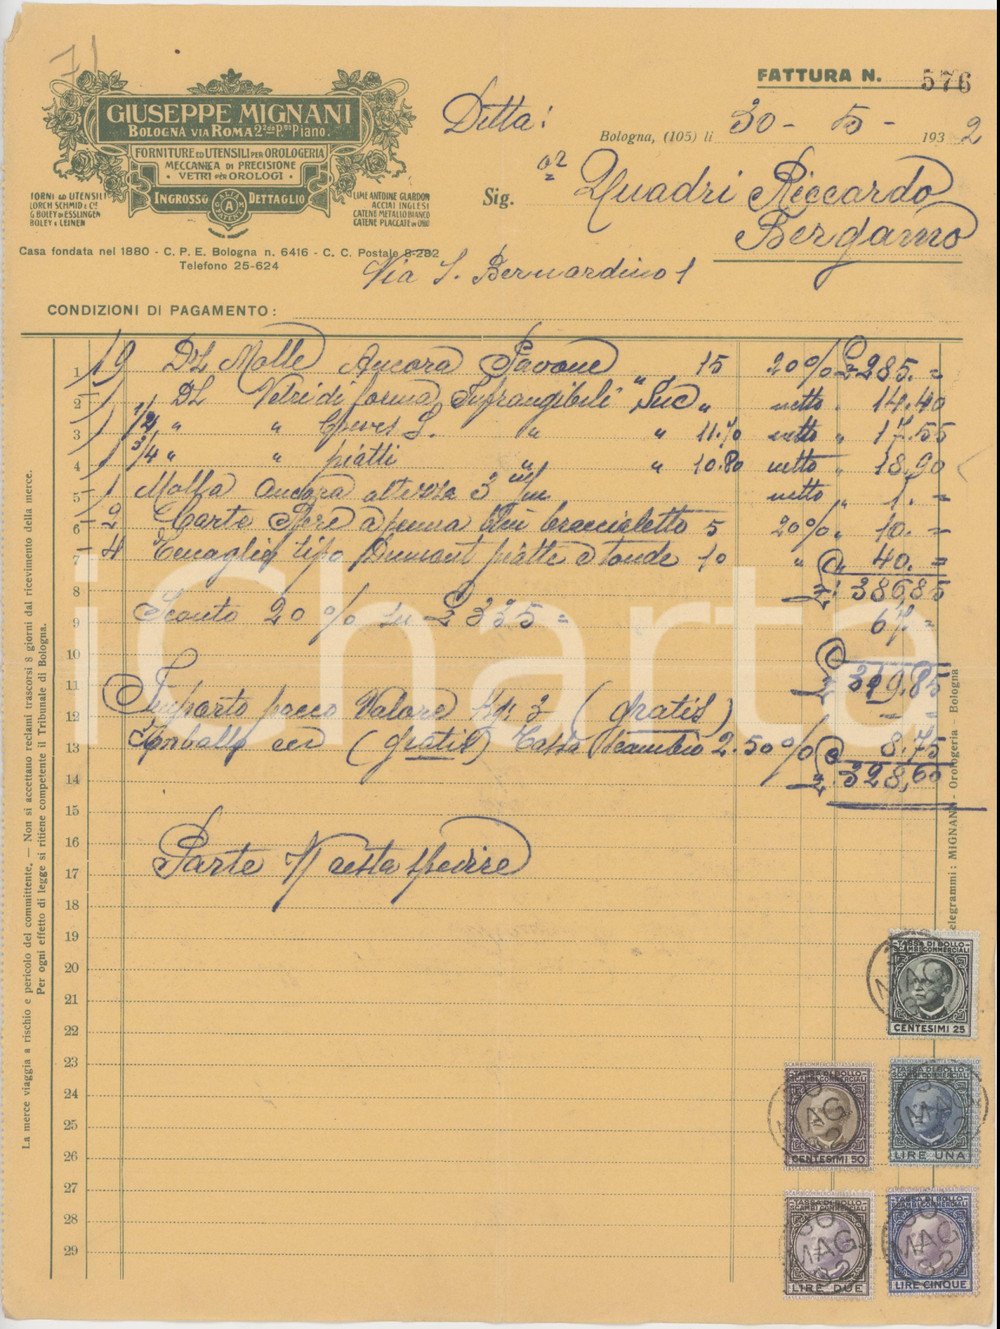 71
GIUSEPPE MIGNANI
BOLOGNA VIA ROMA 2 2do P.no Piano.
FORNITURE ED UTENSILI PER OROLOGERIA
MECCANICA DI PRECISIONE
VETRI PER OROLOGI
INGROSSO DETTAGLIO
FORNI ED UTENSILI
LORCH SCHMID & Co.
G. BOLEY DI ESSLINGEN
BOLEY & LEINEN
LIME ANTOINE GLARDON
ACCIAI INGLESI
CATENE METALLO BIANCO
CATENE PLACCATE IN ORO
Casa fondata nel 1880 - C. P. E. Bologna n. 6416 - C. C. Postale 8-282
Telefono 25-624
FATTURA N. 576
Ditta:
Bologna, (105) li 30 - 5 - 1932
Sig. Quadri Riccardo
Bergamo
Via S. Bernardino 1
CONDIZIONI DI PAGAMENTO:
1 19 Dz Molle Ancora Pavone " 15 20% £ 285. =
2 1 Dz Vetri di forma Infrangibili Suc " netto " 14.40
3 1 1/2 " " L. " " 11.70 netto " 17.55
4 1 3/4 " " piatti " " 10.80 netto " 18.90
5 1 Molla Ancora altezza 3 m/m netto " 1. =
6 2 Carte a penna braccialetto 5 20% " 10. =
7 4 Tenaglie tipo Dumont piatte e tonde 10 " " 40. =
8 £ 386,85
9 Sconto 20 % su £ 335 = 67 =
10
11 £ 319,85
12 Importo pacco Valore Kg 3 (gratis) - =
13 Imballo (gratis) Tassa scambio 2.50 % 8.75
14 £ 328,60
15
16
17 Parte V resta spedire
18
19
20
21
22
23
24
25
26
27
28
29
La merce viaggia a rischio e pericolo del committente. — Non si accettano reclami trascorsi 8 giorni dal ricevimento della merce.
Per ogni effetto di legge si ritiene competente il Tribunale di Bologna.
Telegrammi: MIGNANI - Orologeria Bologna
iCharta
TASSA DI BOLLO
SCAMBI COMMERCIALI
CENTESIMI 25
TASSA DI BOLLO
SCAMBI COMMERCIALI
CENTESIMI 50
30 MAG 32
TASSA DI BOLLO
SCAMBI COMMERCIALI
LIRE UNA
TASSA DI BOLLO
SCAMBI COMMERCIALI
LIRE DUE
30 MAG 32
TASSA DI BOLLO
SCAMBI COMMERCIALI
LIRE CINQUE
30 MAG 32